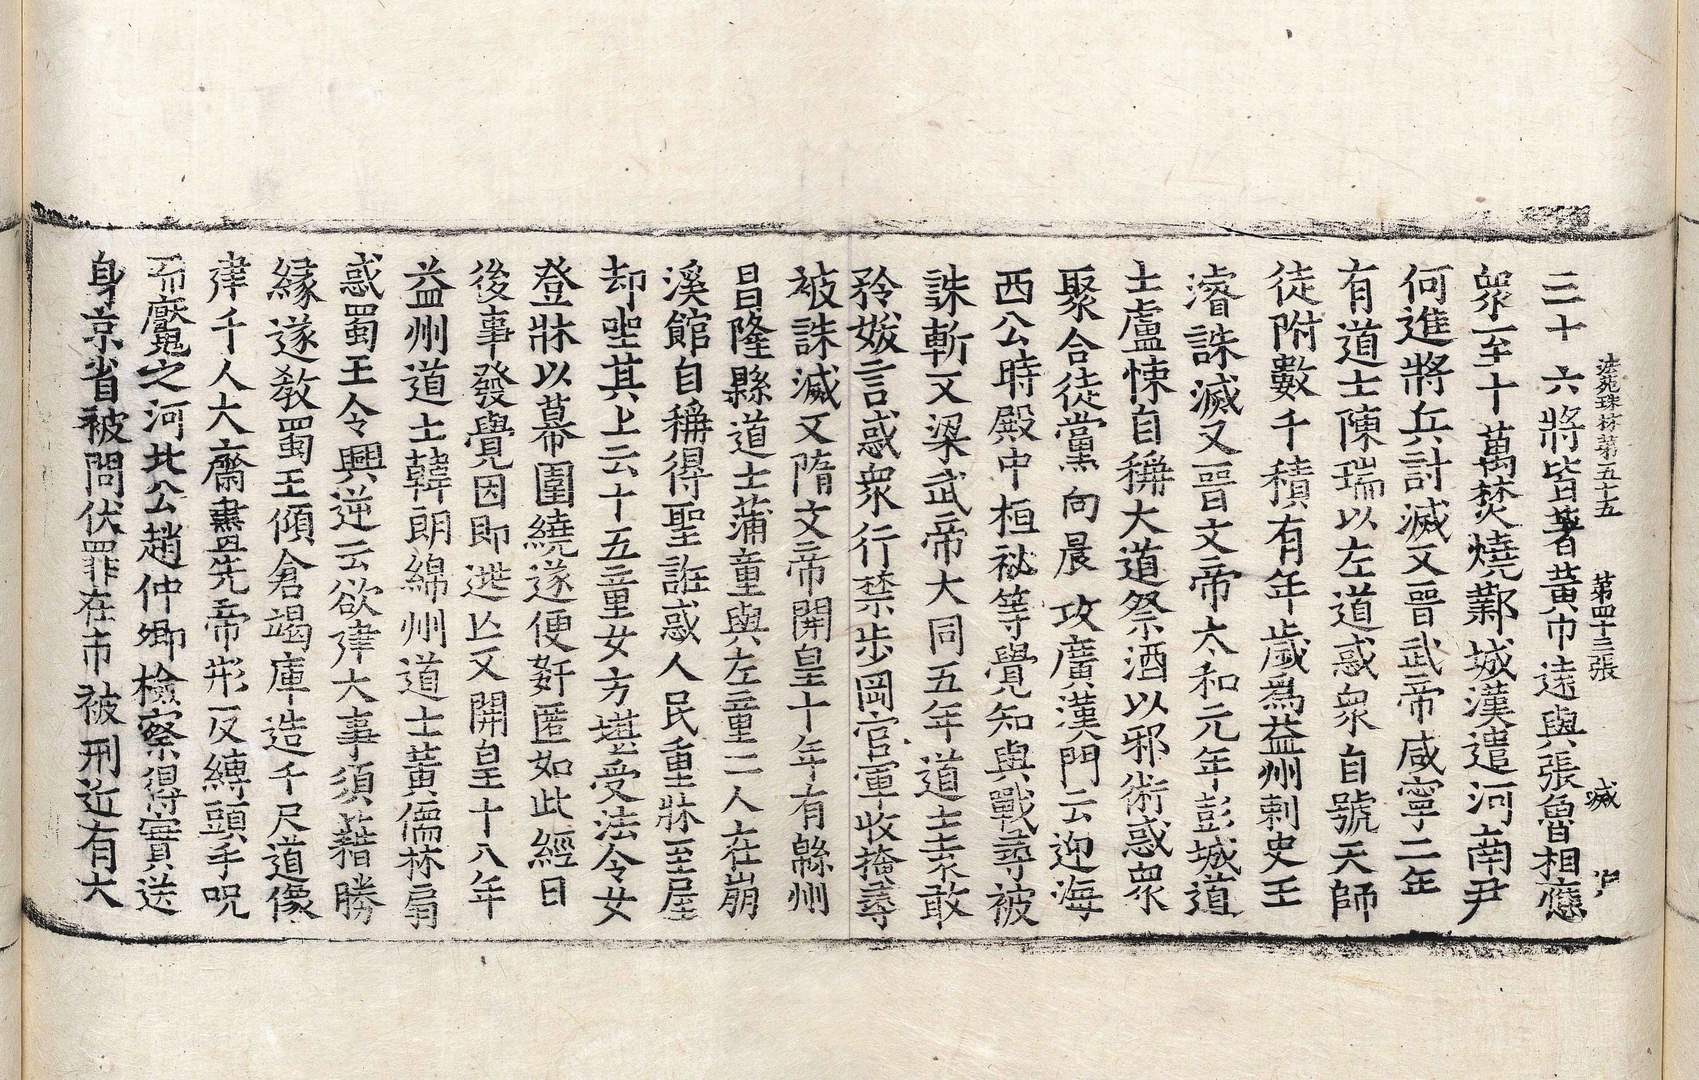 法苑珠林第五十五 第四十三張
三十六將皆著黃巾遠與張魯相應
衆至十萬焚燒鄴城漢遣河南尹
何進將兵討滅又晉武帝咸寧二年
有道士陳瑞以左道惑衆自號天師
徒附數千積有年歲爲益州刺史王
濬誅滅又晉文帝太和元年彭城道
士盧悚自稱大道祭酒以邪術惑衆
聚合徒黨向晨攻廣漢門云迎海
西公時殿中桓祕等覺知與戰尋被
誅斬又梁武帝大同五年道士袁敢
矜妭言惑衆行禁步岡官軍收掩尋
被誅滅又隋文帝開皇十年有緜州
昌隆縣道士蒲童與左童二人在崩
溪館自稱得聖誑惑人民重牀至屋
却坐其上云十五童女方堪受法令女
登牀以幕圍繞遂便姧匿如此經日
後事發覺因即逃亾又開皇十八年
益州道士韓朗綿州道士黃儒林扇
惑蜀王令興逆云欲建大事須藉勝
緣遂教蜀王傾倉竭庫造千尺道像
建千人大齋畫先帝形反縛頭手呪
而魘之河北公趙仲卿檢察得實送
身京省被問伏罪在市被刑近有大